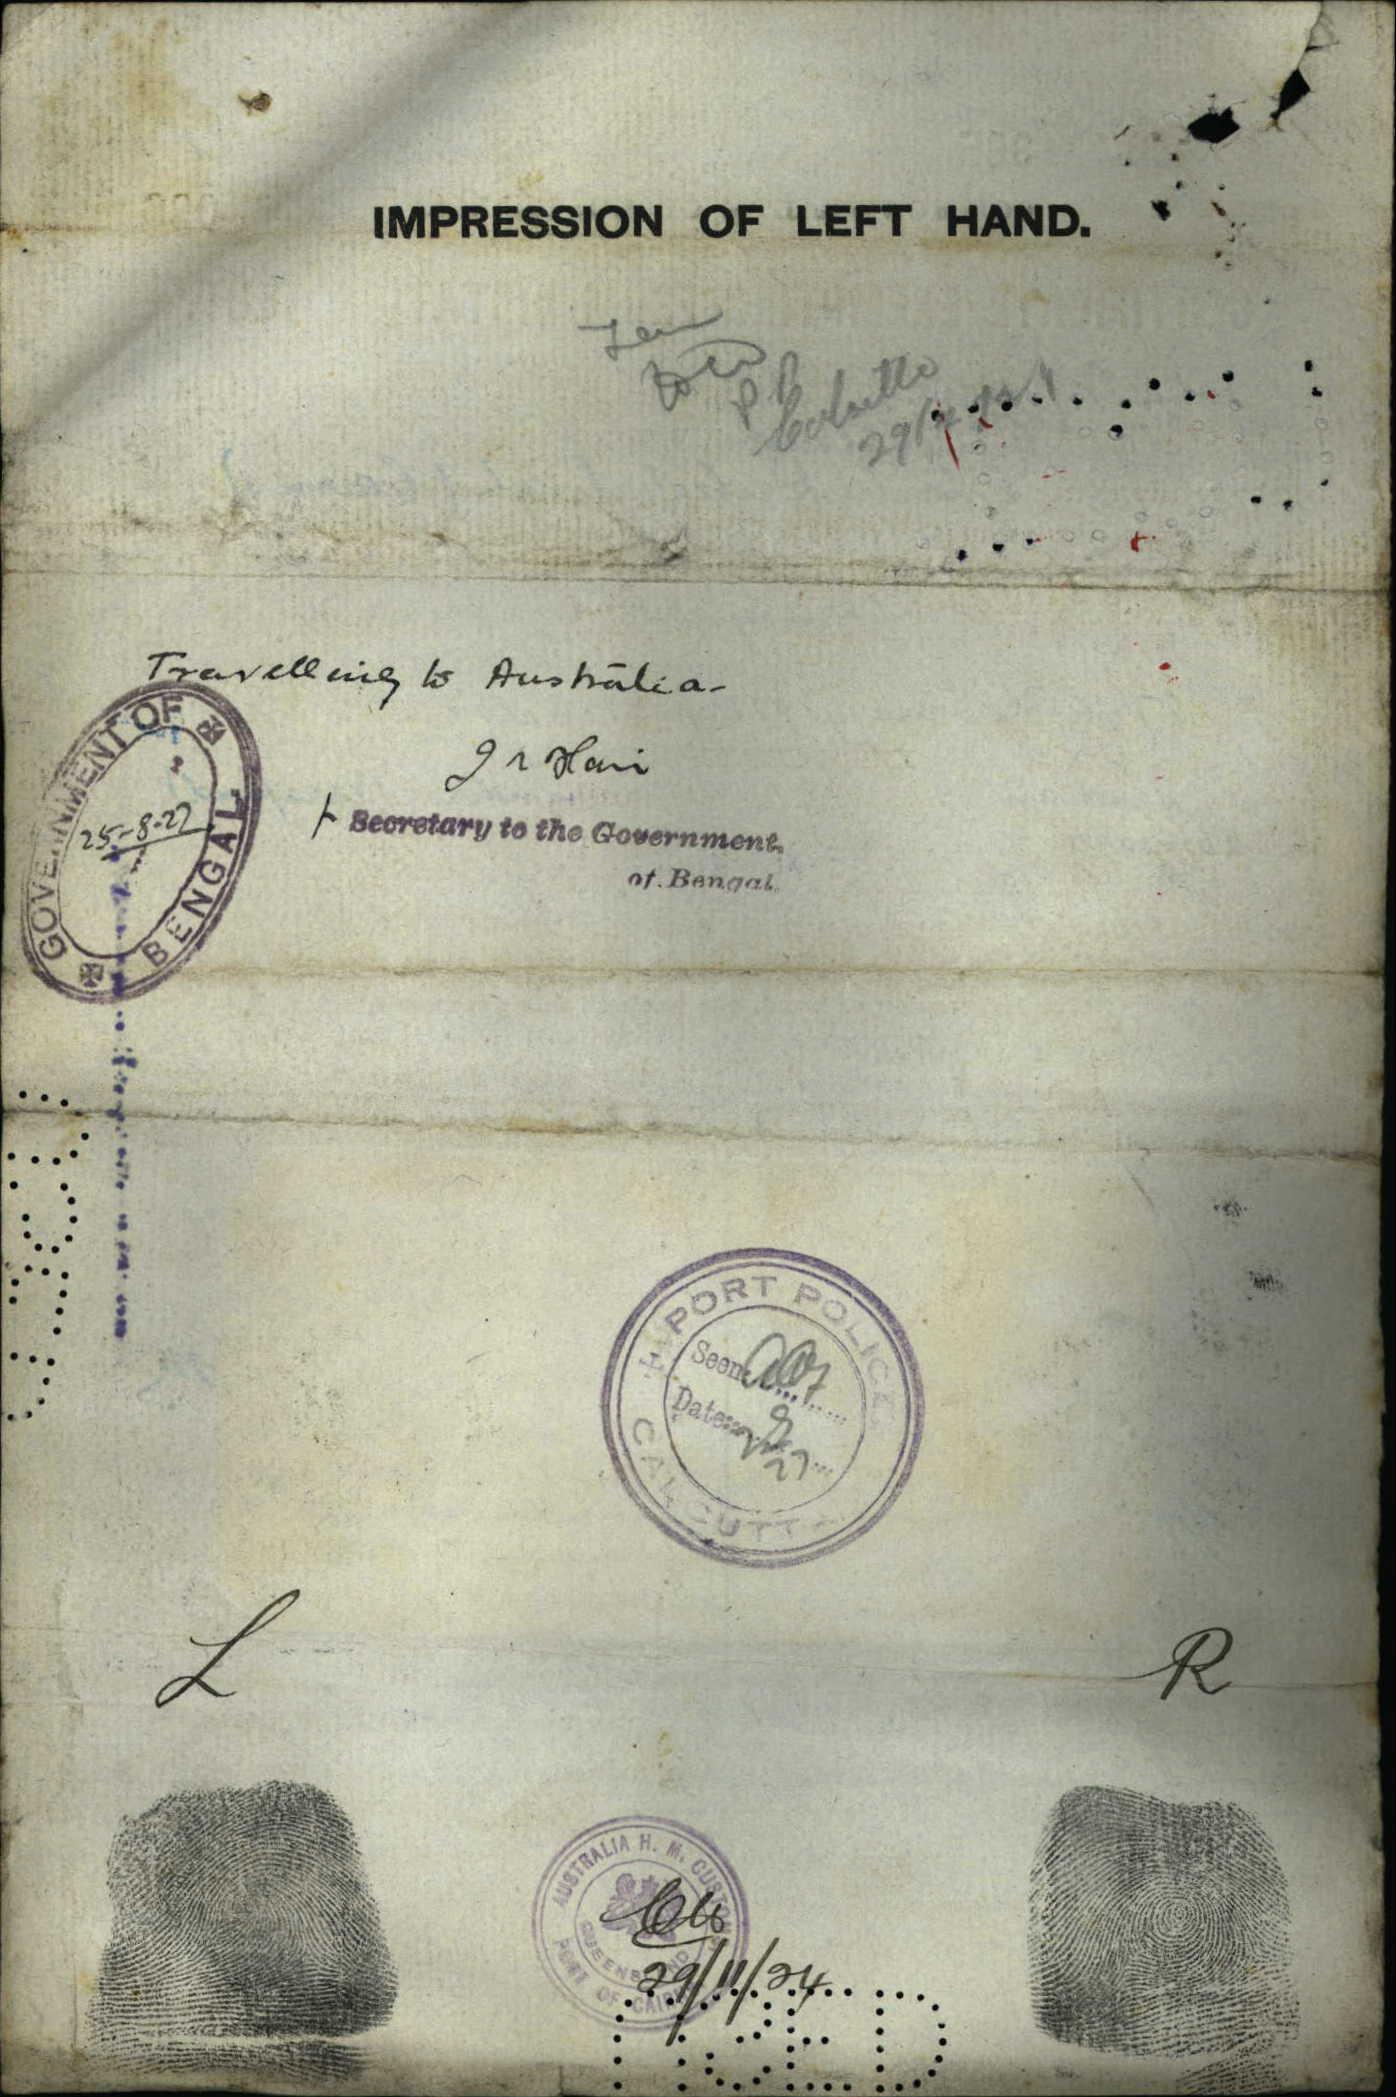 IMPRESSION OF LEFT HAND.
Travelling to Australia
GOVERNMENT OF BENGAL
25-8-27
Secretary to the Government
of Bengal
PORT POLICE
Seen
Date
27
CALCUTTA
L
R
AUSTRALIA H. M. CUSTOMS
QUEENSLAND
PORT OF CAIRNS
29/11/24